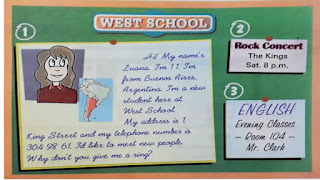 WEST SCHOOL
1
Hi! My name's
Luana. I'm 11. I'm
from Buenos Aires,
Argentina. I'm a new
student here at
West School.
My address is 1
King Street and my telephone number is
304 98 61. I'd like to meet new people.
Why don't you give me a ring?
2
Rock Concert
The Kings
Sat. 8 p.m.
3
ENGLISH
Evening Classes
– Room 104 –
Mr. Clark